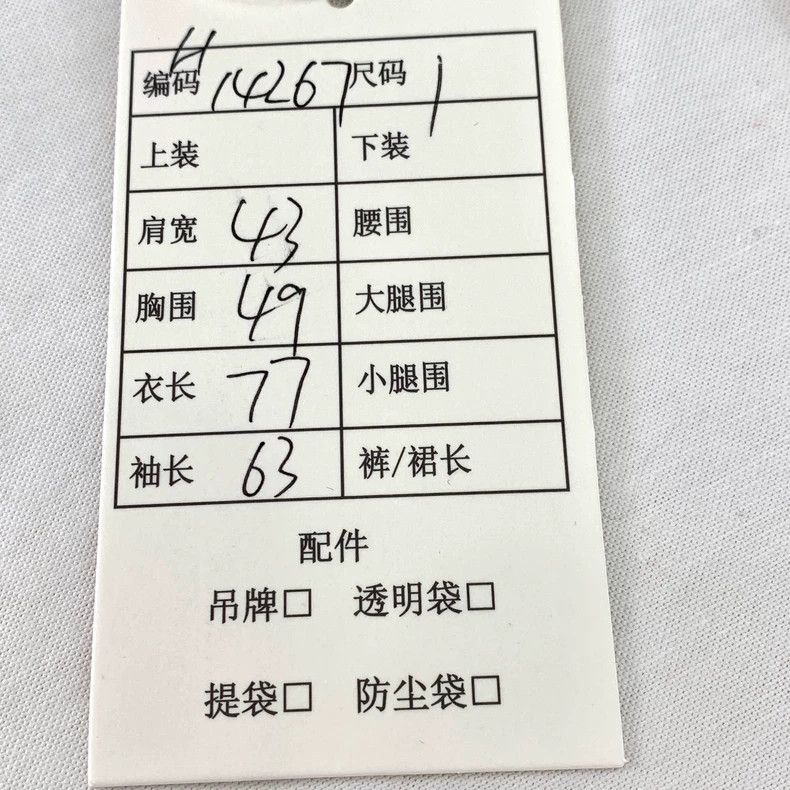 编码 H14267 尺码 1
上装 下装
肩宽 43 腰围
胸围 49 大腿围
衣长 77 小腿围
袖长 63 裤/裙长
配件
吊牌□ 透明袋□
提袋□ 防尘袋□